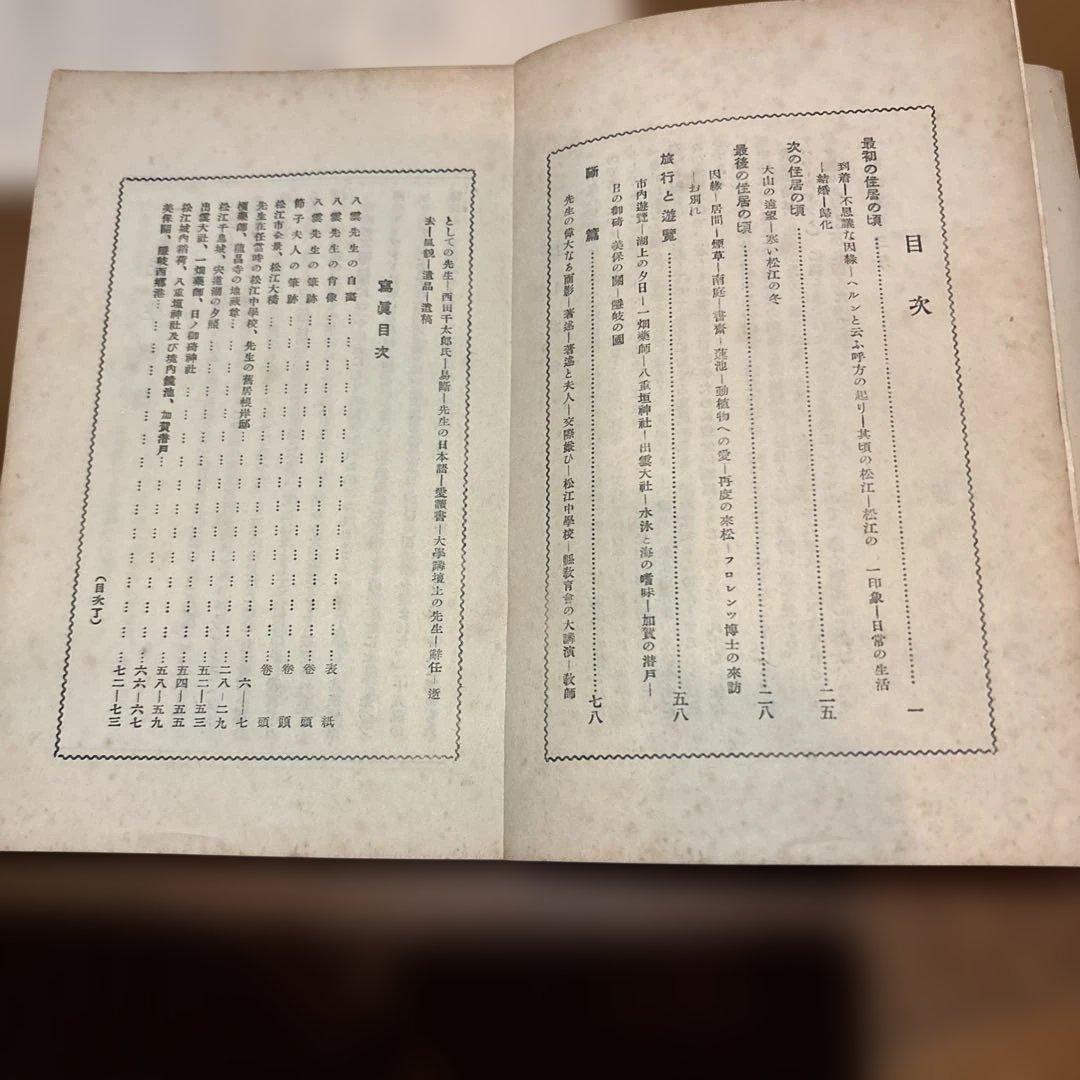 目次
最初の住居の頃……一
到着―不思議な因緣―ヘルンと云ふ呼方の起り―其頃の松江―松江の 一印象―日常の生活
―結婚―歸化
次の住居の頃……二五
大山の遠望―寒い松江の冬
最後の住居の頃……二八
因緣―居間―煙草―南庭―書齋―蓮池―動植物への愛―再度の來松―フロレンツ博士の來訪
―お別れ
旅行と遊覽……五八
市內遊覽―湖上の夕日―一畑藥師―八重垣神社―出雲大社―水泳と海の嗜味―加賀の潛戶―
日の御碕―美保の關―隱岐の國
斷篇……七八
先生の偉大なる面影―著述―著述と夫人―交際嫌ひ―松江中學校―縣敎育會の大講演―敎師
としての先生―西田千太郎氏―易斷―先生の日本語―愛讀書―大學講壇上の先生―辭任―逝
去―風貌―遺品―遺稿
寫眞目次
八雲先生の自畵……表紙
八雲先生の肖像……卷頭
八雲先生の筆跡……卷頭
節子夫人の筆跡……卷頭
松江市全景、松江大橋……六―七
先生在任當時の松江中學校、先生の舊居根岸邸……二八―二九
橋藥師、龍昌寺の地藏尊……五二―五三
松江千鳥城、宍道湖の夕照……五四―五五
出雲大社、一畑藥師、日ノ御碕神社……五八―五九
松江城內稻荷、八重垣神社及び境內鏡池、加賀潛戶……六六―六七
美保關、隱岐西鄕港……七二―七三
(目次了)